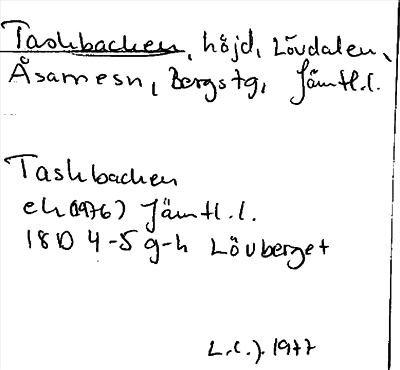 Taskbacken, höjd, Lövdalen,
Åsarnesn, Bergstg, Jämtl.l.
Taskbacken
ek (1976) Jämtl.l.
18D 4-5 g-h Lövberget
1977